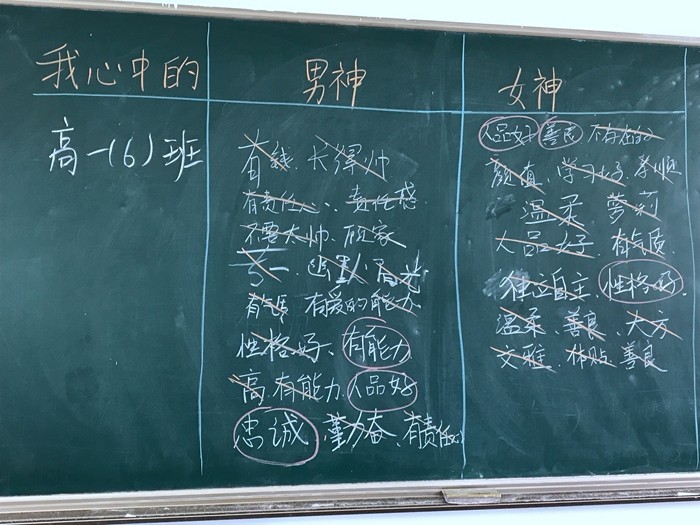 我心中的
男神
女神
高一(6)班
有钱、长得帅
有责任心、责任感
不要太帅、顾家
专一、幽默、阳光
有气质 有爱的能力
性格好、有能力
高、有能力、人品好
忠诚、勤奋、有责任心
人品好 善良 不存在的
颜值、学习好、孝顺
温柔、萝莉
人品好、有气质
独立自主、性格好
温柔、善良、大方
文雅、体贴、善良